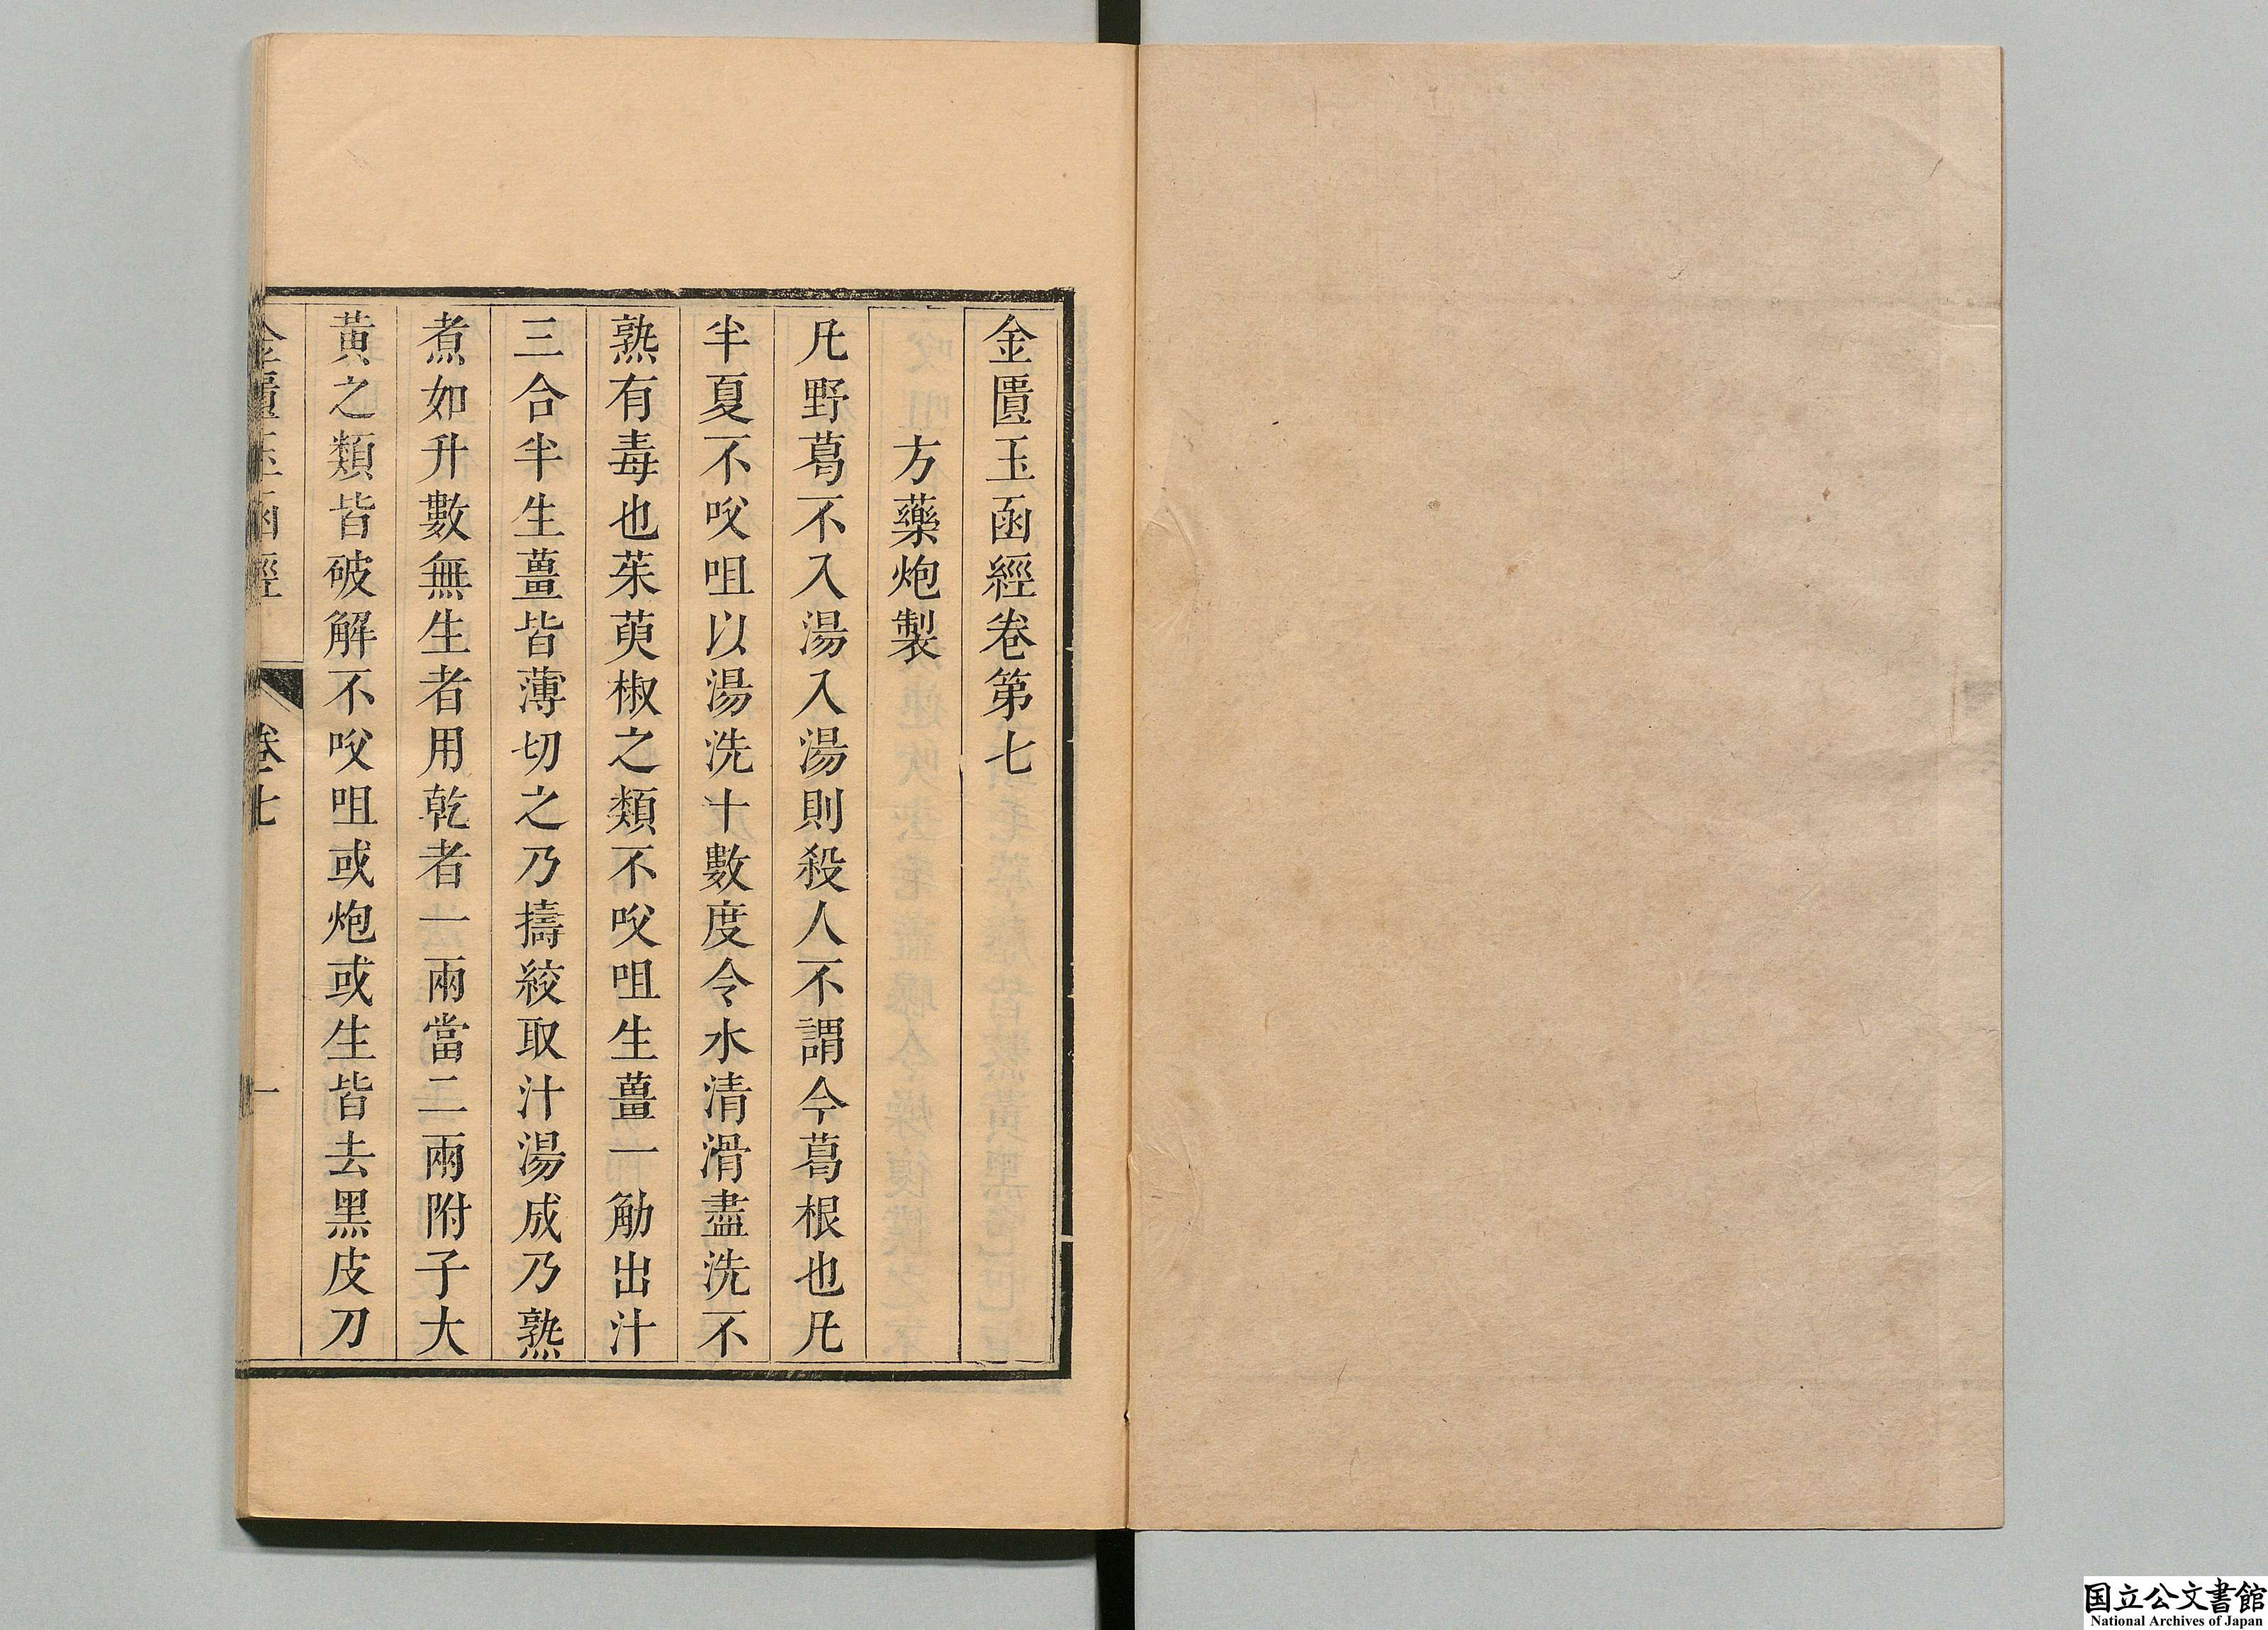 金匱玉函經卷第七
方藥炮製
凡野葛不入湯入湯則殺人不謂今葛根也凡
半夏不㕮咀以湯洗十數度令水清滑盡洗不
熟有毒也茱萸椒之類不㕮咀生薑一觔出汁
三合半生薑皆薄切之乃擣絞取汁湯成乃熟
煮如升數無生者用乾者一兩當二兩附子大
黃之類皆破解不㕮咀或炮或生皆去黑皮刀
金匱玉函經
卷七
一
国立公文書館
National Archives of Japan